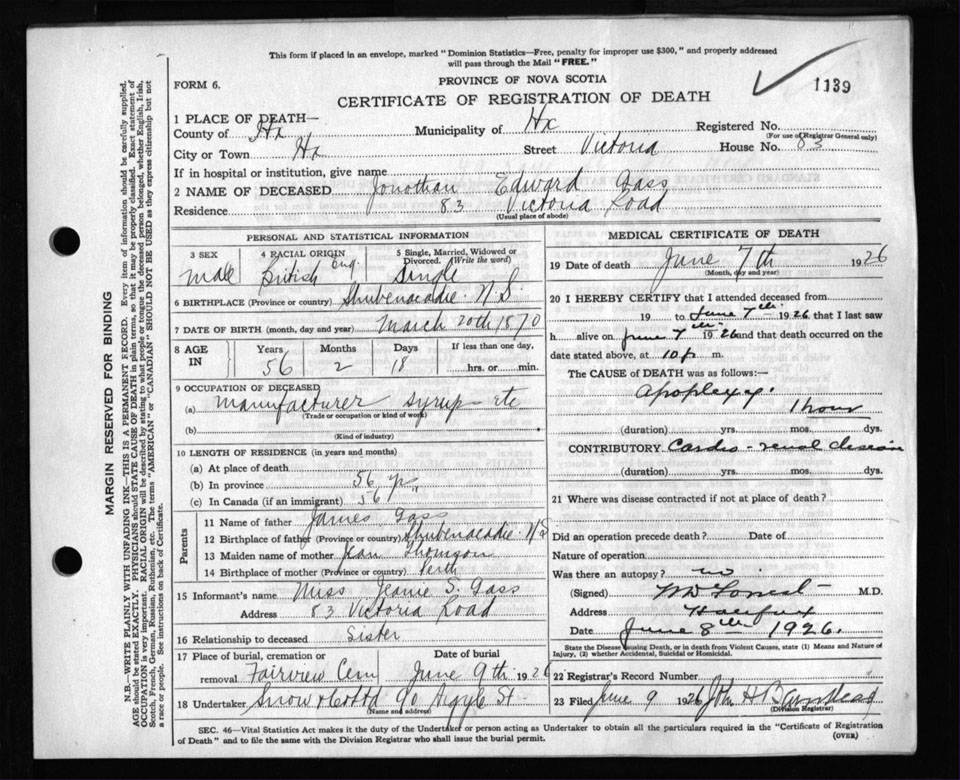 This form if placed in an envelope, marked "Dominion Statistics—Free, penalty for improper use $300," and properly addressed
will pass through the Mail "FREE."
1139
FORM 6.
PROVINCE OF NOVA SCOTIA
CERTIFICATE OF REGISTRATION OF DEATH
1 PLACE OF DEATH—
County of Hx Municipality of Hx Registered No.
(For use of Registrar General only)
City or Town Hx Street Victoria House No. 83
If in hospital or institution, give name
2 NAME OF DECEASED Jonothan Edward Gass
Residence 83 Victoria Road
(Usual place of abode)
PERSONAL AND STATISTICAL INFORMATION
3 SEX 4 RACIAL ORIGIN 5 Single, Married, Widowed or
Divorced. (Write the word)
Male British Eng. Single
6 BIRTHPLACE (Province or country) Shubenacadie N S
7 DATE OF BIRTH (month, day and year) March 20th 1870
8 AGE IN Years Months Days If less than one day,
56 2 18 hrs. or min.
9 OCCUPATION OF DECEASED
(a) Manufacturer syrup etc
(Trade or occupation or kind of work)
(b)
(Kind of industry)
10 LENGTH OF RESIDENCE (in years and months)
(a) At place of death
(b) In province 56 yr
(c) In Canada (if an immigrant) 56 "
Parents
11 Name of father James Gass
12 Birthplace of father (Province or country) Shubenacadie N S
13 Maiden name of mother Jean Thomson
14 Birthplace of mother (Province or country) Perth
15 Informant's name Miss Jeanie S. Gass
Address 83 Victoria Road
16 Relationship to deceased Sister
17 Place of burial, cremation or Date of burial
removal Fairview Cem June 9th 1926
18 Undertaker Snow & Co Ltd 90 Argyle St
(Name and address)
MEDICAL CERTIFICATE OF DEATH
19 Date of death June 7th 1926
(Month, day and year)
20 I HEREBY CERTIFY that I attended deceased from
19 to June 7th 1926 that I last saw
h alive on June 7th 1926 and that death occurred on the
date stated above, at 10 p m.
The CAUSE of DEATH was as follows:—
Apoplexy
1 hour
(duration) yrs. mos. dys.
CONTRIBUTORY Cardio-renal disease
(duration) yrs. mos. dys.
21 Where was disease contracted if not at place of death?
Did an operation precede death? Date of
Nature of operation
Was there an autopsy? no
(Signed) M.D.
Address Halifax
Date June 8th 1926.
State the Disease Causing Death, or in death from Violent Causes, state (1) Means and Nature of
Injury, (2) whether Accidental, Suicidal or Homicidal.
22 Registrar's Record Number
23 Filed June 9 1926 John H Barnstead
(Division Registrar)
SEC. 46—Vital Statistics Act makes it the duty of the Undertaker or person acting as Undertaker to obtain all the particulars required in the "Certificate of Registration
of Death" and to file the same with the Division Registrar who shall issue the burial permit.
(OVER)
MARGIN RESERVED FOR BINDING
N.B.—WRITE PLAINLY WITH UNFADING INK—THIS IS A PERMANENT RECORD. Every item of information should be carefully supplied.
AGE should be stated EXACTLY. PHYSICIANS should STATE CAUSE OF DEATH in plain terms, so that it may be properly classified. Exact statement of
OCCUPATION is very important. RACIAL ORIGIN will be described by stating to what people or tongue the deceased person belonged, whether English, Irish,
Scotch, French, German, Russian, Ruthenian, etc. The terms "AMERICAN" or "CANADIAN" SHOULD NOT BE USED as they express citizenship but not
a race or people. See instructions on back of Certificate.